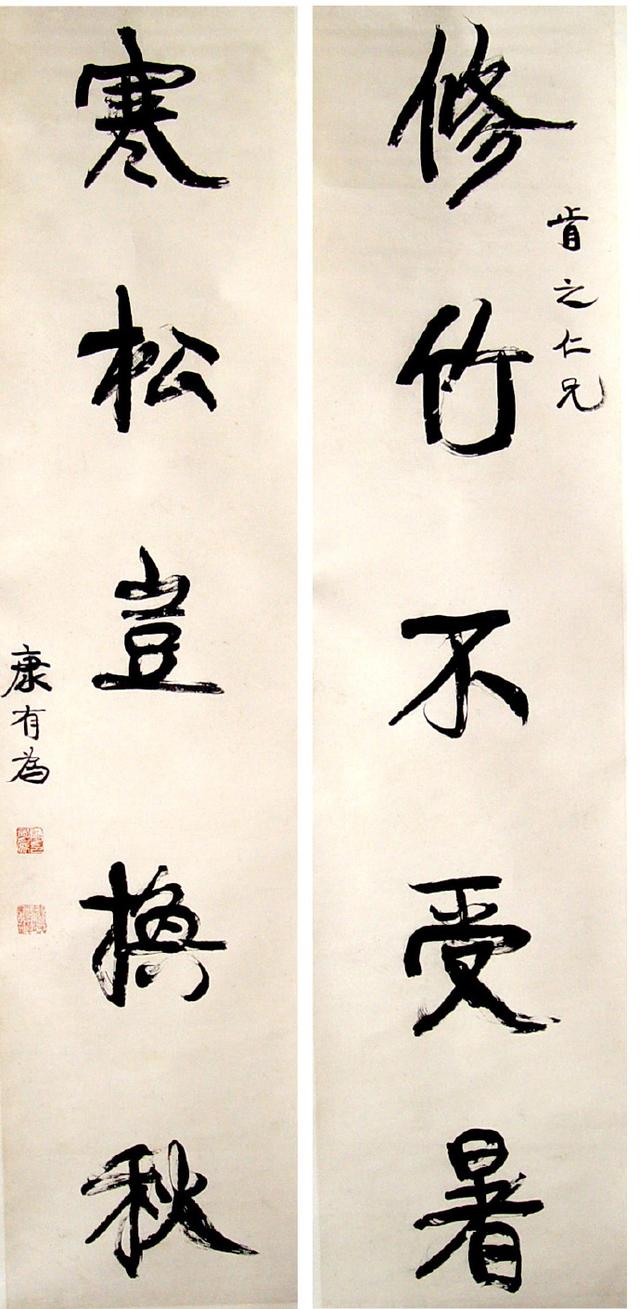 修竹不受暑
肯之仁兄
寒松豈換秋
康有為